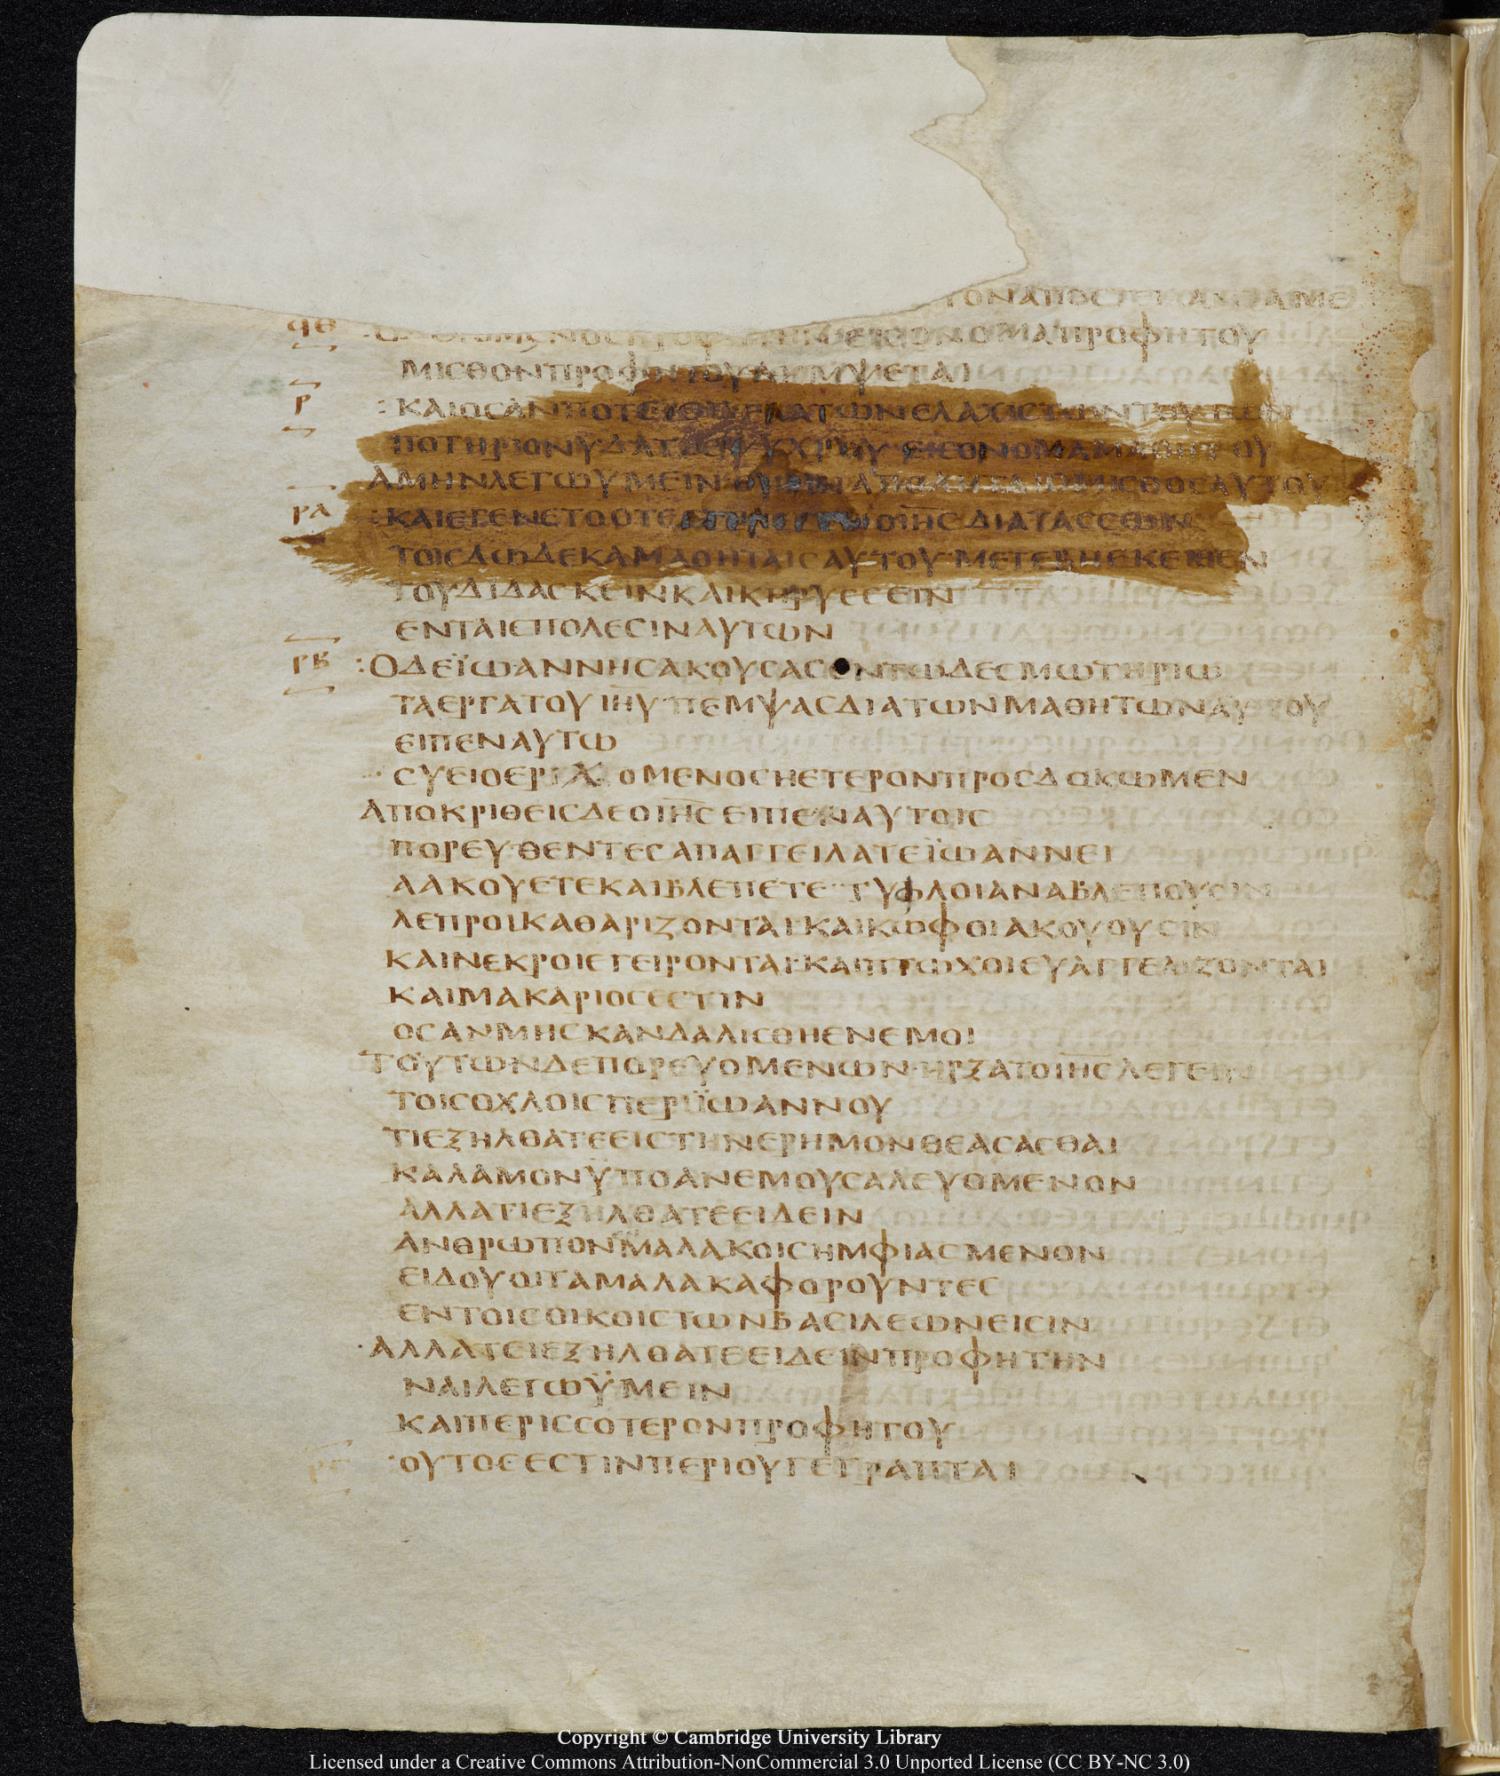 ΤΟΝΑΠΟCΤΕΙΛΑΝΤΑΜΕ
ϤΘ ΕΙCΟΝΟΜΑΠΡΟΦΗΤΟΥ
ΜΙCΘΟΝΠΡΟΦΗΤΟΥΛΗΜΨΕΤΑΙ
Ρ :ΚΑΙΟCΑΝΠΟΤΕΙCΗ ΕΛΑΧΙCΤΩΝΤΟΥΤΩΝ
ΠΟΤΗΡΙΟΝΥΔΑΤΟC ΕΙCΟΝΟΜΑΜΑΘΗΤΟΥ
ΑΜΗΝΛΕΓΩΥΜΕΙΝ ΟΜΙCΘΟCΑΥΤΟΥ
ΡΑ :ΚΑΙΕΓΕΝΕΤΟΟΤΕ ΟΙΗCΔΙΑΤΑCCΩΝ
ΤΟΙCΔΩΔΕΚΑΜΑΘΗΤΑΙCΑΥΤΟΥ·ΜΕΤΕΒΗΕΚΕΙΘΕΝ
ΤΟΥΔΙΔΑCΚΕΙΝΚΑΙΚΗΡΥCCΕΙΝ
ΕΝΤΑΙCΠΟΛΕCΙΝΑΥΤΩΝ
ΡΒ :ΟΔΕΪΩΑΝΝΗCΑΚΟΥCΑCΕΝΤΩΔΕCΜΩΤΗΡΙΩ
ΤΑΕΡΓΑΤΟΥΙΗΥ·ΠΕΜΨΑCΔΙΑΤΩΝΜΑΘΗΤΩΝΑΥΤΟΥ
ΕΙΠΕΝΑΥΤΩ
CΥΕΙΟΕΡΧΟΜΕΝΟCΗΕΤΕΡΟΝΠΡΟCΔΟΚΩΜΕΝ
ΑΠΟΚΡΙΘΕΙCΔΕΟΙΗCΕΙΠΕΝΑΥΤΟΙC
ΠΟΡΕΥΘΕΝΤΕCΑΠΑΓΓΕΙΛΑΤΕΪΩΑΝΝΕΙ
ΑΑΚΟΥΕΤΕΚΑΙΒΛΕΠΕΤΕ·ΤΥΦΛΟΙΑΝΑΒΛΕΠΟΥCΙΝ
ΛΕΠΡΟΙΚΑΘΑΡΙΖΟΝΤΑΙ·ΚΑΙΚΩΦΟΙΑΚΟΥΟΥCΙΝ
ΚΑΙΝΕΚΡΟΙΕΓΕΙΡΟΝΤΑΙ·ΚΑΙΠΤΩΧΟΙΕΥΑΓΓΕΛΙΖΟΝΤΑΙ
ΚΑΙΜΑΚΑΡΙΟCΕCΤΙΝ
ΟCΑΝΜΗCΚΑΝΔΑΛΙCΘΗΕΝΕΜΟΙ
ΤΟΥΤΩΝΔΕΠΟΡΕΥΟΜΕΝΩΝ·ΗΡΞΑΤΟΙΗCΛΕΓΕΙΝ
ΤΟΙCΟΧΛΟΙCΠΕΡΙΪΩΑΝΝΟΥ
ΤΙΕΞΗΛΘΑΤΕΕΙCΤΗΝΕΡΗΜΟΝΘΕΑCΑCΘΑΙ
ΚΑΛΑΜΟΝΫΠΟΑΝΕΜΟΥCΑΛΕΥΟΜΕΝΟΝ
ΑΛΛΑΤΙΕΞΗΛΘΑΤΕΕΙΔΕΙΝ
ΑΝΘΡΩΠΟΝΜΑΛΑΚΟΙCΗΜΦΙΑCΜΕΝΟΝ
ΕΙΔΟΥΟΙΤΑΜΑΛΑΚΑΦΟΡΟΥΝΤΕC
ΕΝΤΟΙCΟΙΚΟΙCΤΩΝΒΑCΙΛΕΩΝΕΙCΙΝ
·ΑΛΛΑΤΕΙΕΞΗΛΘΑΤΕΕΙΔΕΙΝΠΡΟΦΗΤΗΝ
ΝΑΙΛΕΓΩΫΜΕΙΝ
ΚΑΙΠΕΡΙCCΟΤΕΡΟΝΠΡΟΦΗΤΟΥ
:ΟΥΤΟCΕCΤΙΝΠΕΡΙΟΥΓΕΓΡΑΠΤΑΙ
Copyright © Cambridge University Library
Licensed under a Creative Commons Attribution-NonCommercial 3.0 Unported License (CC BY-NC 3.0)